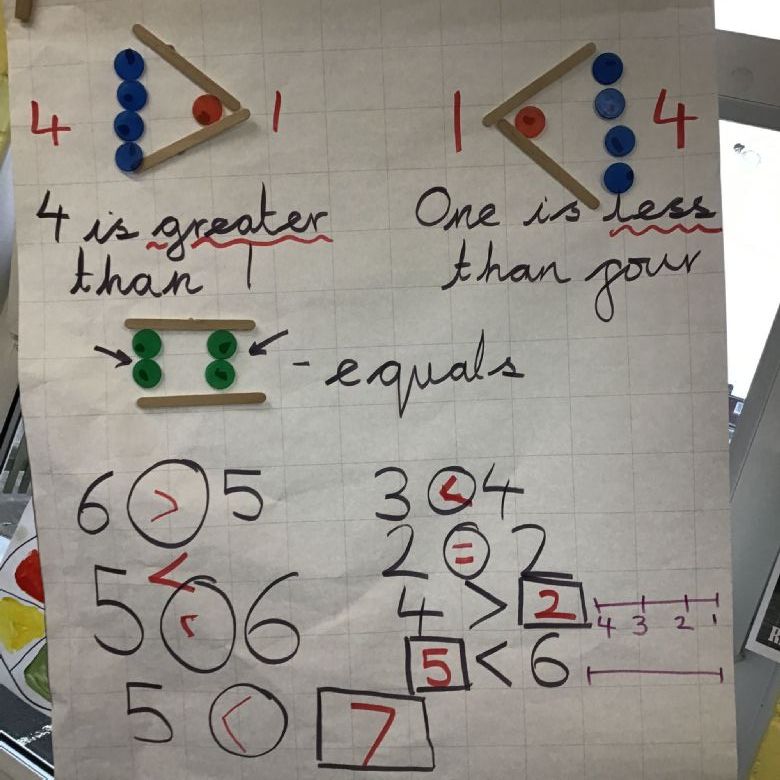 4 > 1
1 < 4
4 is greater
than 1
One is less
than four
- equals
6 > 5
3 < 4
2 = 2
<
5 < 6
4 > 2
4 3 2 1
5 < 6
5 < 7